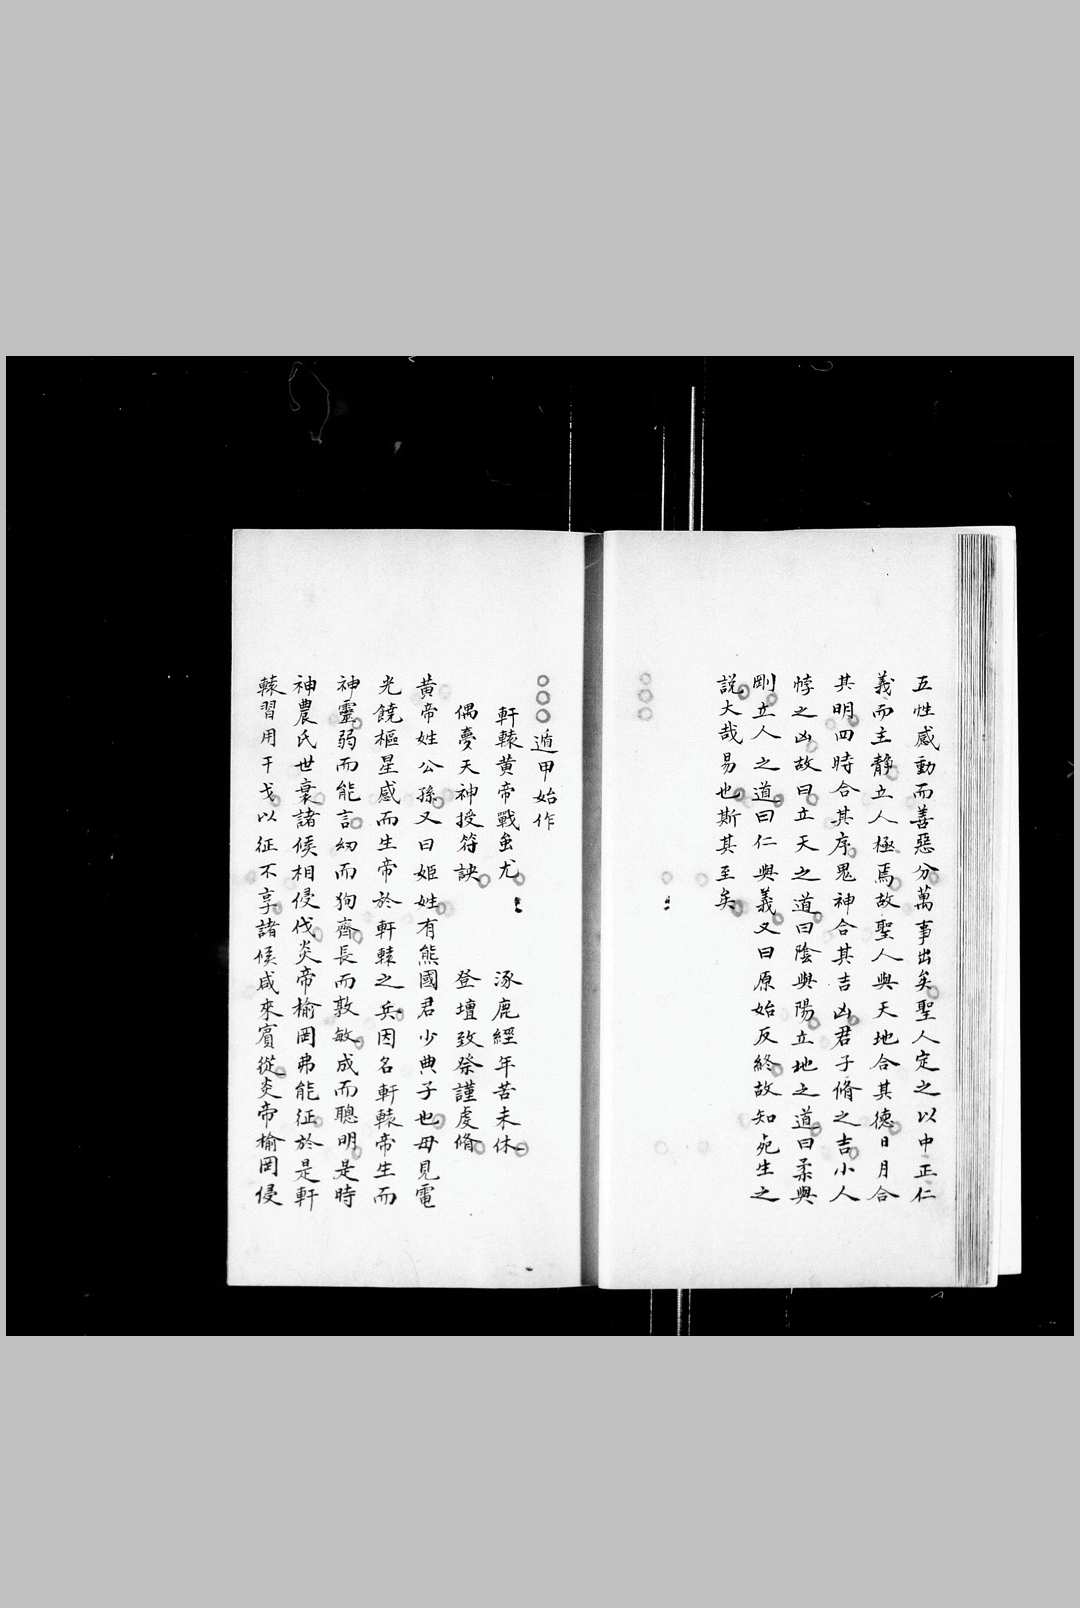 五性感動而善惡分萬事出矣聖人定之以中正仁
義而主靜立人極焉故聖人與天地合其德日月合
其明四時合其序鬼神合其吉凶君子脩之吉小人
悖之凶故曰立天之道曰陰與陽立地之道曰柔與
剛立人之道曰仁與義又曰原始反終故知死生之
説大哉易也斯其至矣
○○○遁甲始作
軒轅黃帝戰蚩尤 涿鹿經年苦未休
偶夢天神授符訣 登壇致祭謹虔脩
黃帝姓公孫又曰姬姓有熊國君少典子也母見電
光饒樞星感而生帝於軒轅之兵因名軒轅帝生而
神靈弱而能言幼而狥齊長而敦敏成而聰明是時
神農氏世衰諸侯相侵伐炎帝榆罔弗能征於是軒
轅習用干戈以征不享諸侯咸來賓從炎帝榆罔侵